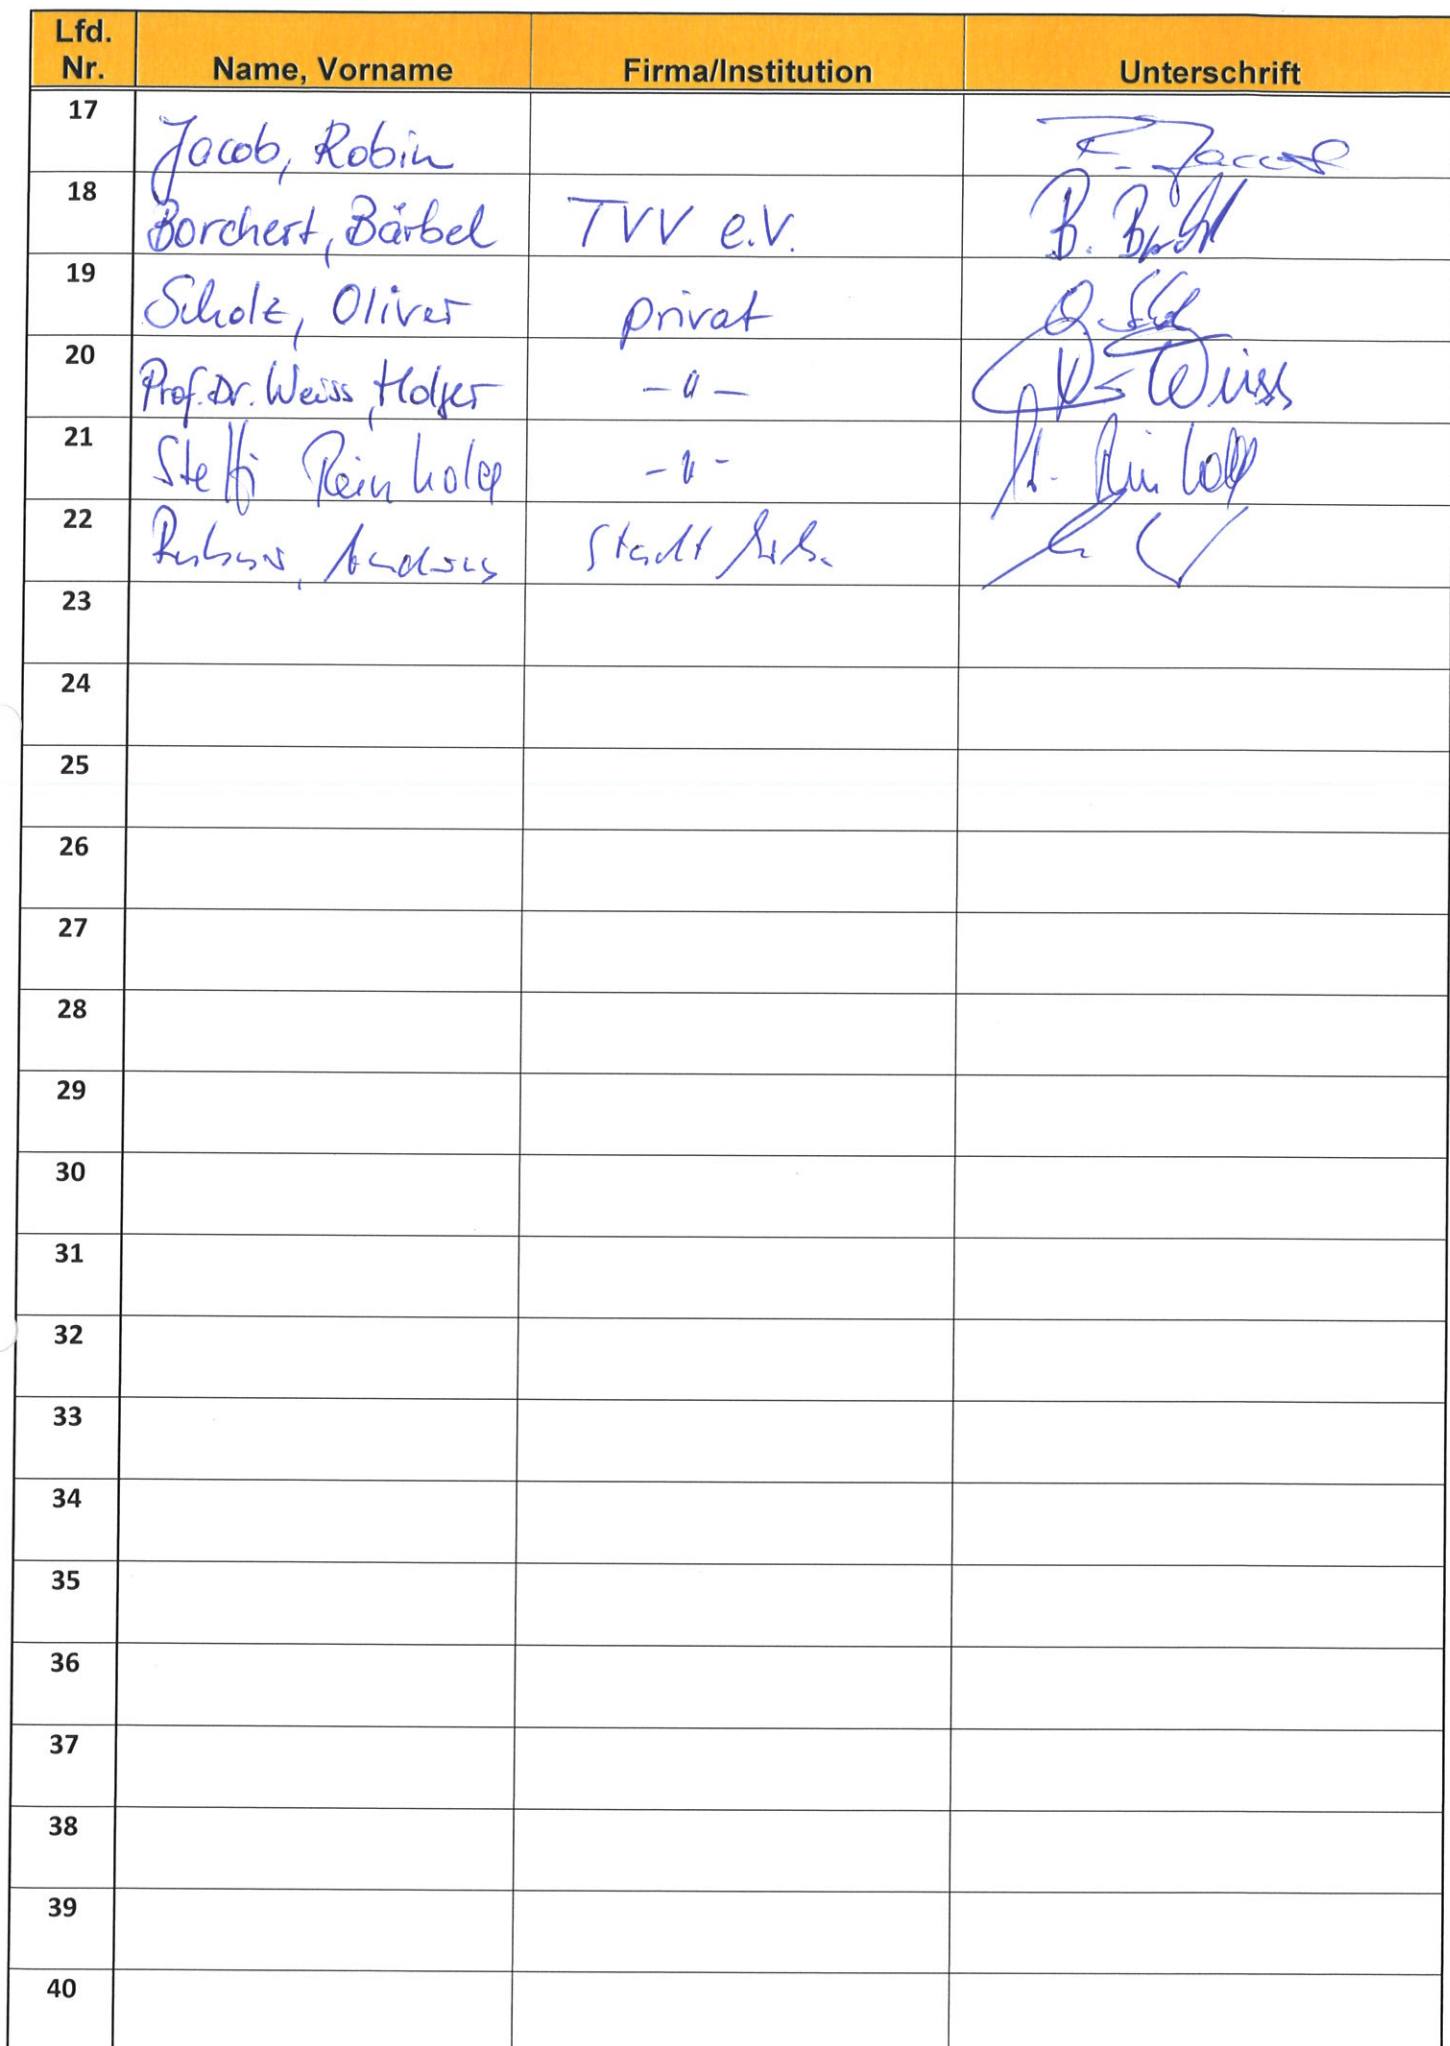 Lfd. Nr. Name, Vorname Firma/Institution Unterschrift
17 Jacob, Robin
18 Borchert, Bärbel TVV e.V. B.
19 Scholz, Oliver privat O.
20 Prof. Dr. Weiss, Holger -"- Weiss
21 Steffi Reinhold -"- St. Reinhold
22 Stadt
23
24
25
26
27
28
29
30
31
32
33
34
35
36
37
38
39
40